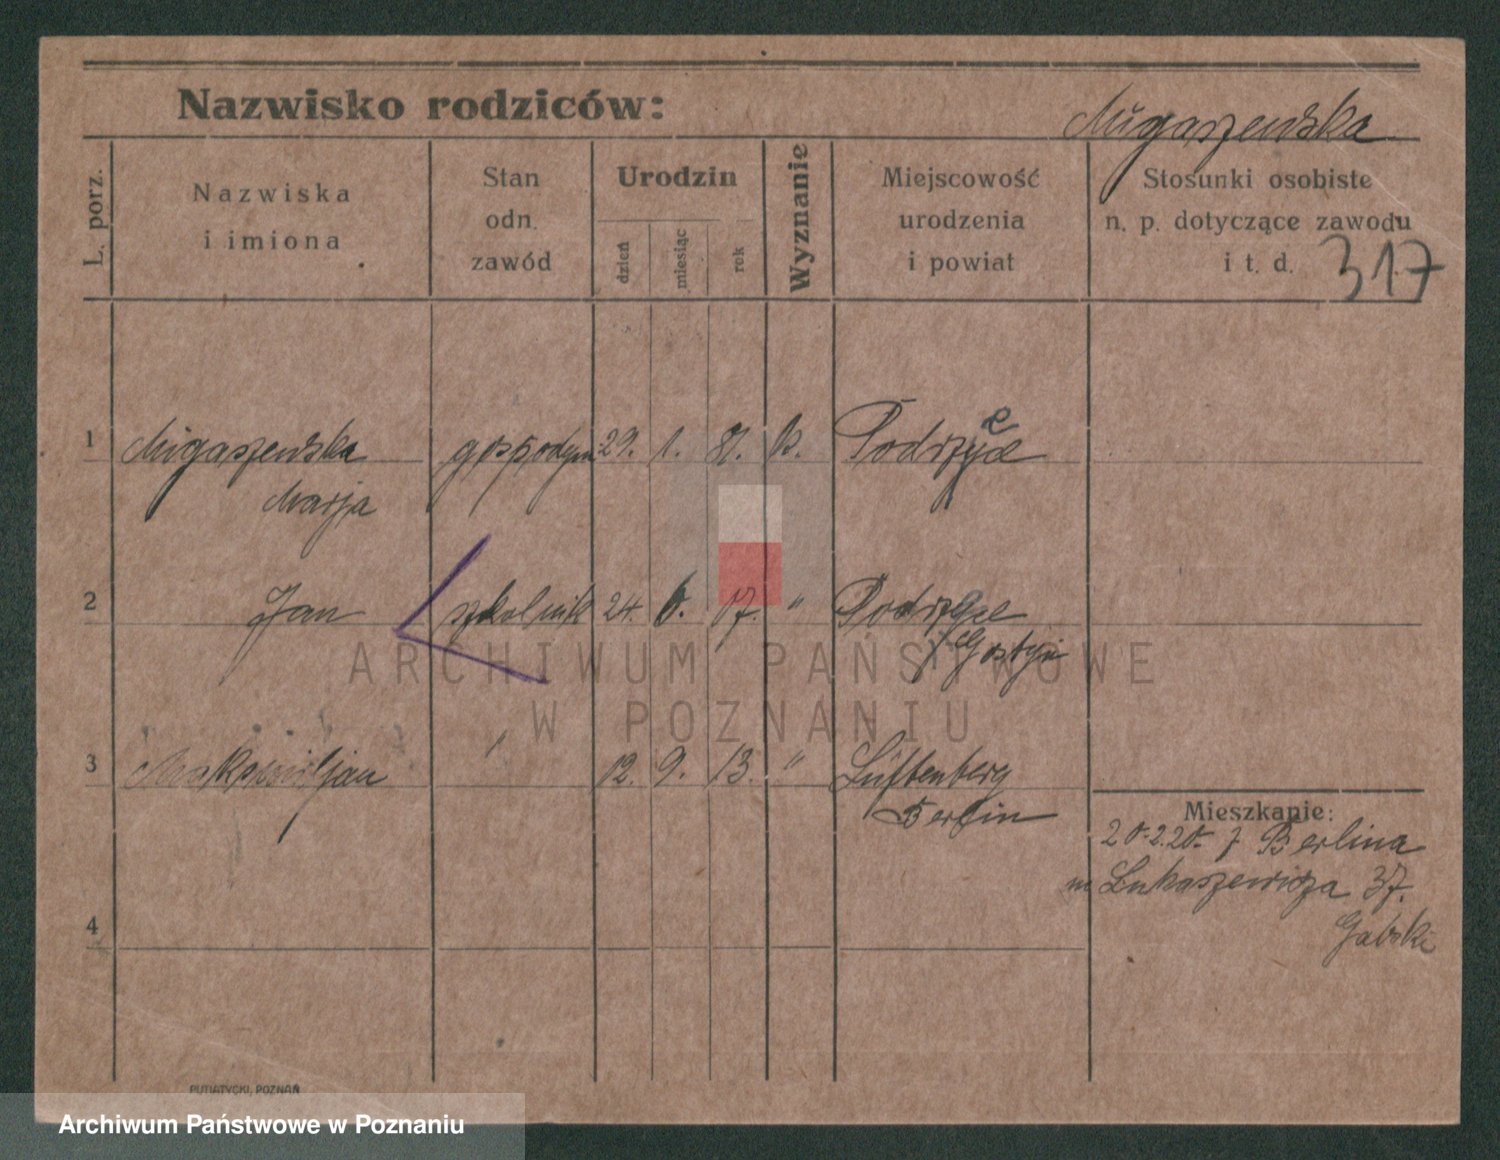 Nazwisko rodziców: Migaszewska
L. porz.
Nazwiska i imiona
Stan odn. zawód
Urodzin
dzień
miesiąc
rok
Wyznanie
Miejscowość urodzenia i powiat
Stosunki osobiste n. p. dotyczące zawodu i t. d.
317
1 Migaszewska gospodyni 29. 1. 81. k. Podrzyce
Marja
2 Jan szkolnik 24. 6. 07. " Podrzyce
Gostyń
3 Maksymiljan 12. 9. 13. "
Berlin
Mieszkanie:
20.2.20. z Berlina
Łukaszewicza 37.
4 Gabski
PUTIATYCKI, POZNAŃ
ARCHIWUM PAŃSTWOWE
W POZNANIU
Archiwum Państwowe w Poznaniu